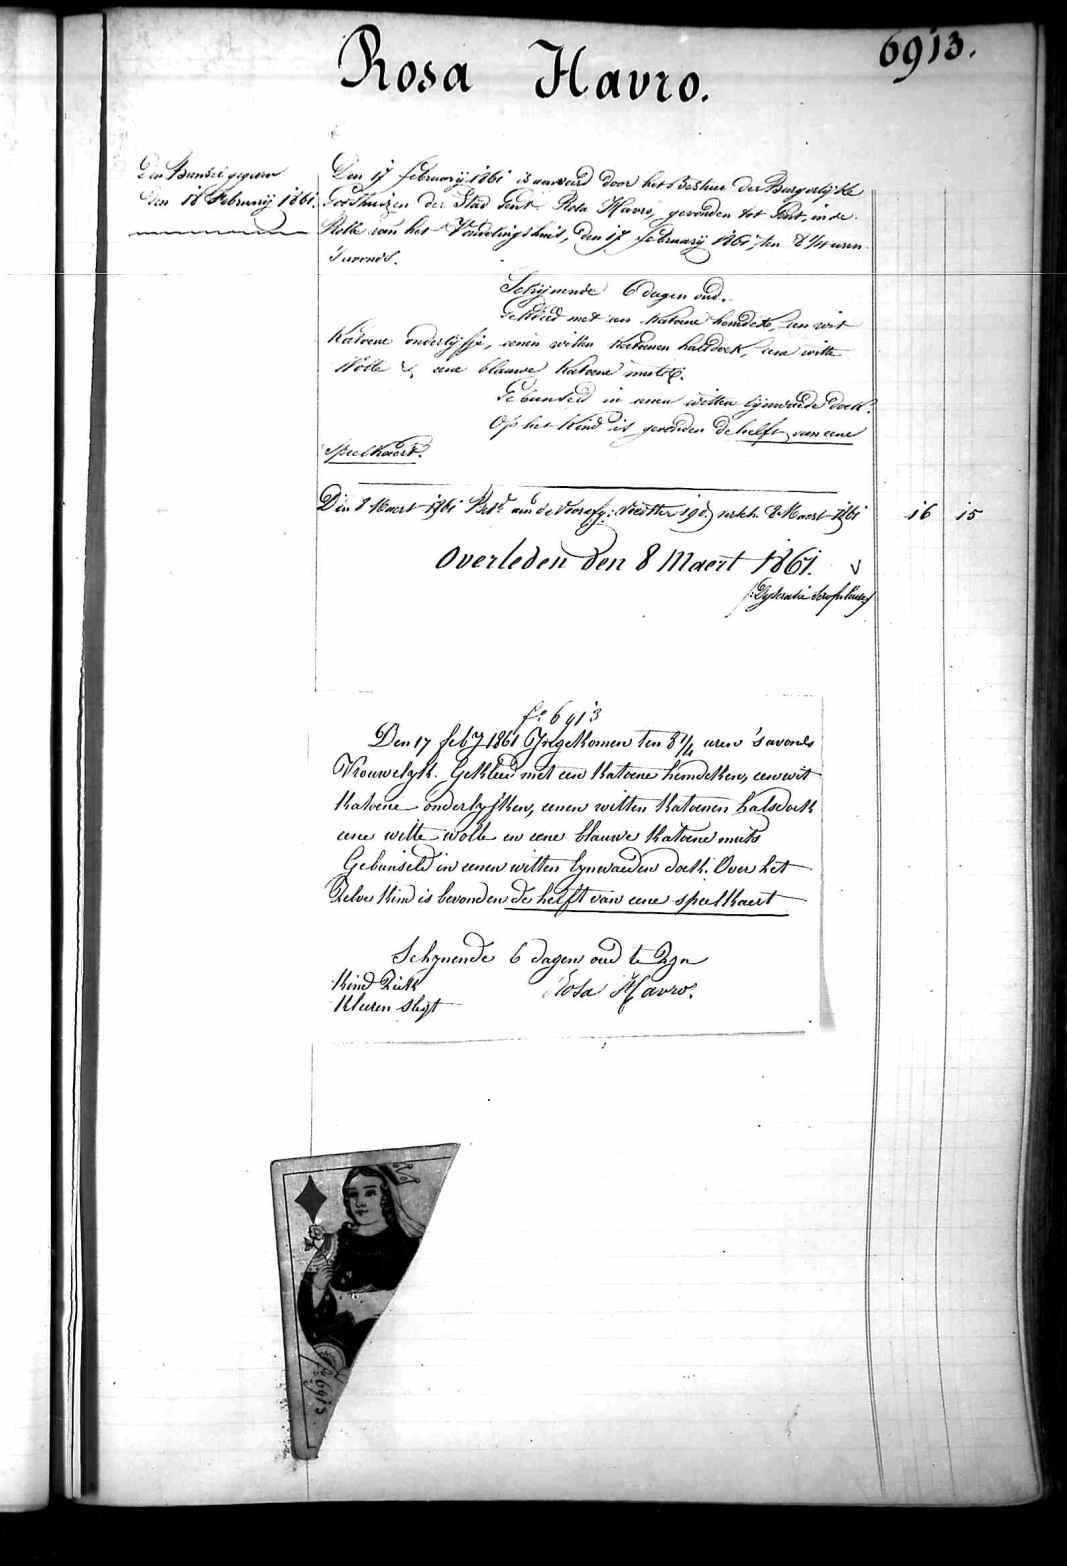 6913.
Rosa Havro.
Den Bunsel gegeven
den 18 Februarij 1861.
Den 17 februarij 1861 is aanveerd door het Bestuer der Burgerlijke
Godshuizen der Stad Gent Rosa Havro, gevonden tot Gent, in de
Rolle van het Vondelingshuis, den 17 februarij 1861, ten 8 1/4 uren
's avonds.
Schijnende 6 dagen oud.
Gekleed met een katoene hemdeke, een wit
katoene onderlijfje, eenen witten katoenen halsdoek, eene witte
Wolle & eene blauwe katoene muts.
Gebunseld in eenen witten lijnwaede doek.
Op het kind is gevonden de helft van eene
speelkaert.
Den 8 Maert 1861 aan de 8 Maert 1861 16 15
Overleden den 8 Maert 1861.
fo. 6913
Den 17 feby 1861 Ingekomen ten 8 1/4 uren 's avonds
Vrouwelyk. Gekleed met een katoene hemdeken, een wit
katoene onderlyfken, eenen witten katoenen halsdoek
eene witte wolle en eene blauwe katoene muts
Gebunseld in eenen witten lynwaeden doek. Over het
Zelve kind is bevonden de helft van eene speelkaert
Schynende 6 dagen oud te Zyn
Kind Ziek
Rosa Havro.
Kleeren slegt
6913